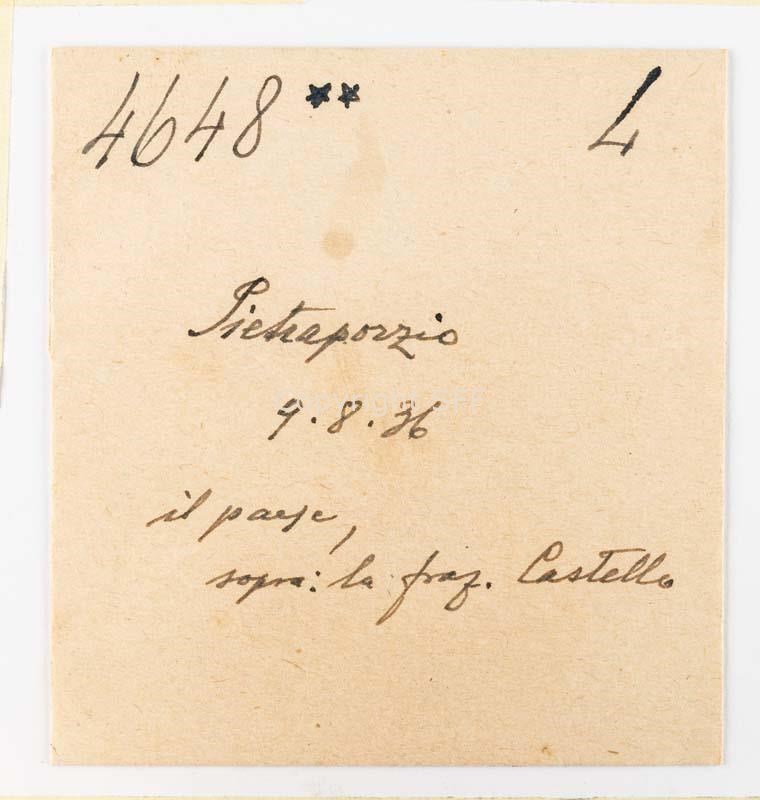 4648 ** L
Pietraporzio
9.8.36
il paese,
sopra: la fraz. Castello